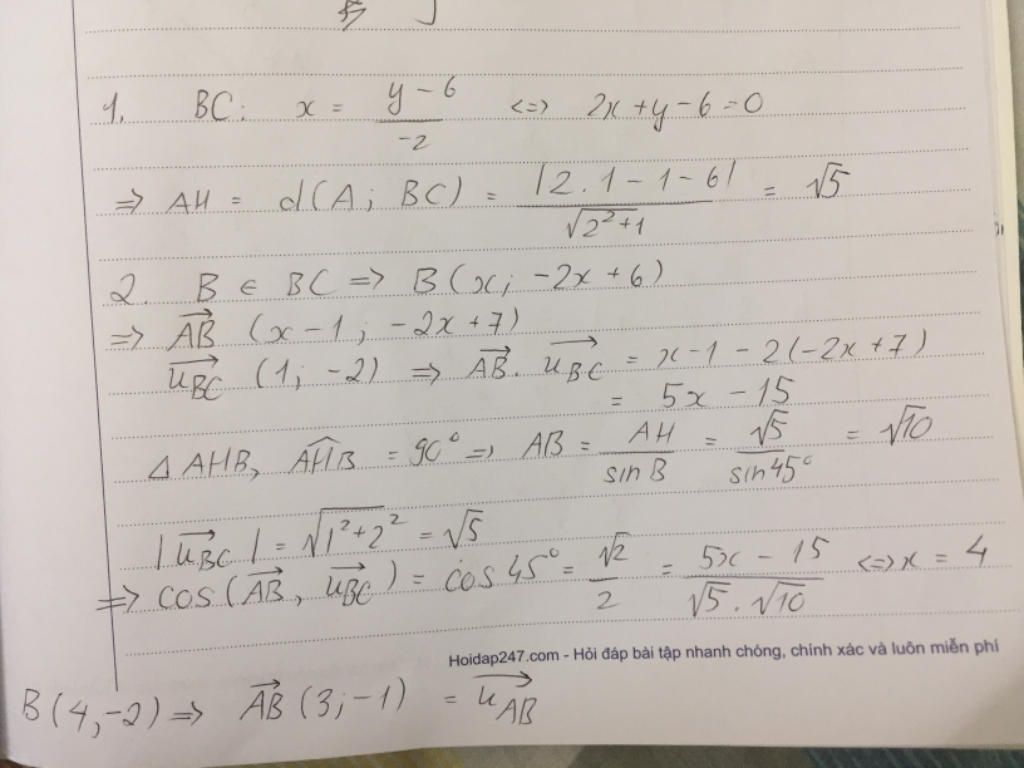 1. BC: x = \frac{y-6}{-2} <=> 2x+y-6=0
=> AH = d(A; BC) = \frac{|2.1-1-6|}{\sqrt{2^2+1}} = \sqrt{5}
2. B ∈ BC => B(x; -2x+6)
=> \overrightarrow{AB} (x-1; -2x+7)
\overrightarrow{u_{BC}} (1; -2) => \overrightarrow{AB}. \overrightarrow{u_{BC}} = x-1-2(-2x+7)
= 5x-15
Δ AHB, \widehat{AHB} = 90° => AB = \frac{AH}{sin B} = \frac{\sqrt{5}}{sin 45°} = \sqrt{10}
|\overrightarrow{u_{BC}}| = \sqrt{1^2+2^2} = \sqrt{5}
=> cos(\overrightarrow{AB}, \overrightarrow{u_{BC}}) = cos 45° = \frac{\sqrt{2}}{2} = \frac{5x-15}{\sqrt{5}.\sqrt{10}} <=> x = 4
Hoidap247.com - Hỏi đáp bài tập nhanh chóng, chính xác và luôn miễn phí
B(4,-2) => \overrightarrow{AB} (3;-1) = \overrightarrow{u_{AB}}